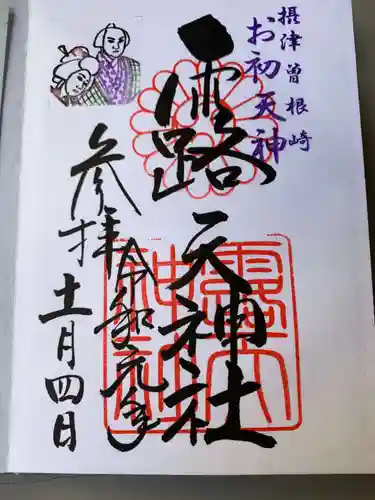 摂津曽根崎
お初天神
露天神社
令和元年
参拝
十一月四日